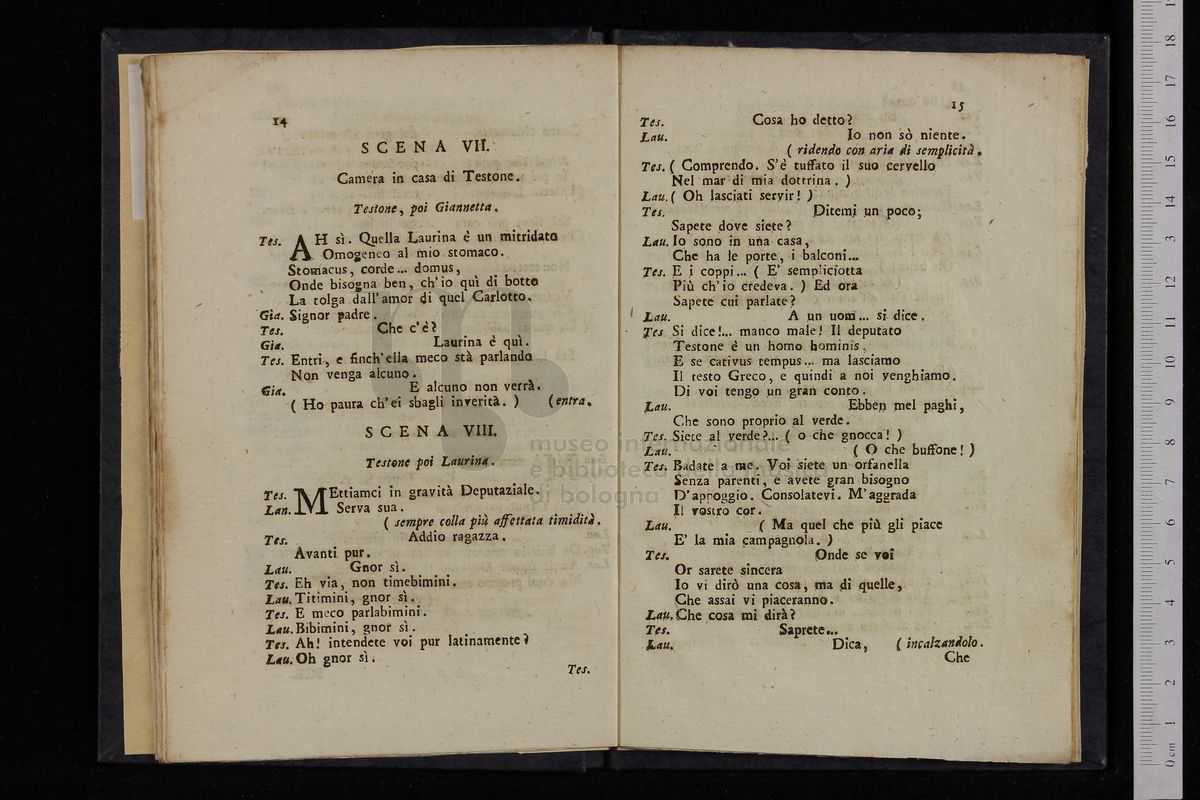 14
SCENA VII.
Camera in casa di Testone.
Testone, poi Giannetta.
Tes. AH sì. Quella Laurina è un mitridato
Omogeneo al mio stomaco.
Stomacus, corde... domus,
Onde bisogna ben, ch'io quì di botto
La tolga dall'amor di quel Carlotto.
Gia. Signor padre.
Tes. Che c'è?
Gia. Laurina è quì.
Tes. Entri, e finch'ella meco stà parlando
Non venga alcuno.
Gia. E alcuno non verrà.
( Ho paura ch'ei sbagli inverità. ) (entra.
SCENA VIII.
Testone poi Laurina.
Tes. MEttiamci in gravità Deputaziale.
Lan. Serva sua.
( sempre colla più affettata timidità.
Tes. Addio ragazza.
Avanti pur.
Lau. Gnor sì.
Tes. Eh via, non timebimini.
Lau. Titimini, gnor sì.
Tes. E meco parlabimini.
Lau. Bibimini, gnor sì.
Tes. Ah! intendete voi pur latinamente?
Lau. Oh gnor sì.
Tes.
15
Tes. Cosa ho detto?
Lau. Io non sò niente.
( ridendo con aria di semplicità.
Tes. ( Comprendo. S'è tuffato il suo cervello
Nel mar di mia dottrina. )
Lau. ( Oh lasciati servir! )
Tes. Ditemi un poco;
Sapete dove siete?
Lau. Io sono in una casa,
Che ha le porte, i balconi...
Tes. E i coppi... ( E' sempliciotta
Più ch'io credeva. ) Ed ora
Sapete cui parlate?
Lau. A un uom... si dice.
Tes Si dice!... manco male! Il deputato
Testone è un homo hominis,
E se cativus tempus... ma lasciamo
Il testo Greco, e quindi a noi venghiamo.
Di voi tengo un gran conto.
Lau. Ebben mel paghi,
Che sono proprio al verde.
Tes. Siete al verde?... ( o che gnocca! )
Lau. ( O che buffone! )
Tes. Badate a me. Voi siete un orfanella
Senza parenti, e avete gran bisogno
D'appoggio. Consolatevi. M'aggrada
Il vostro cor.
Lau. ( Ma quel che più gli piace
E' la mia campagnola. )
Tes. Onde se voi
Or sarete sincera
Io vi dirò una cosa, ma di quelle,
Che assai vi piaceranno.
Lau. Che cosa mi dirà?
Tes. Saprete...
Lau. Dica, ( incalzandolo.
Che
museo internazionale
e biblioteca della musica
di bologna
0 cm 1 2 3 4 5 6 7 8 9 10 11 12 13 14 15 16 17 18